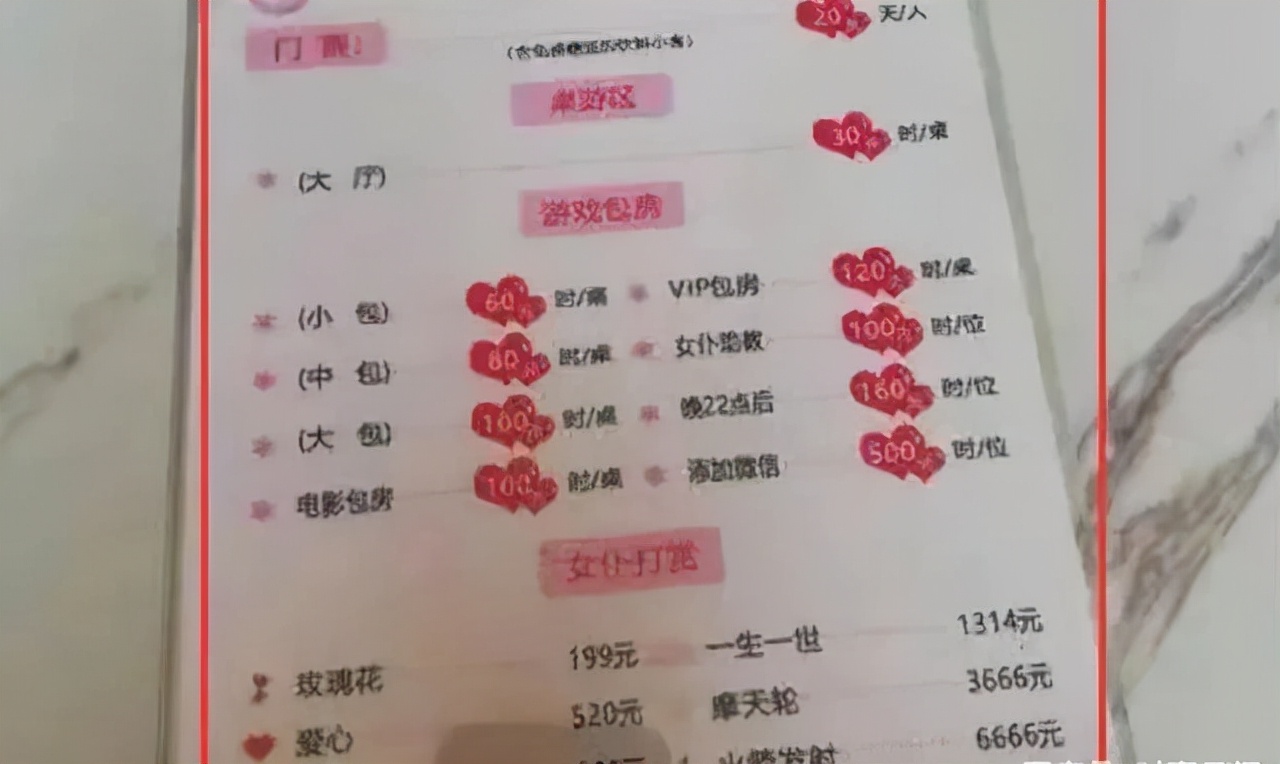 门票 20 天/人
桌游区
(大 厅) 30 时/桌
游戏包房
(小 包) 60 时/桌 VIP包房 120 时/桌
(中 包) 80 时/桌 女仆陪教 100 时/位
(大 包) 100 时/桌 晚22点后 160 时/位
电影包房 100 时/桌 添加微信 500 时/位
女仆打赏
玫瑰花 199元 一生一世 1314元
愛心 520元 摩天轮 3666元
火箭发射 6666元